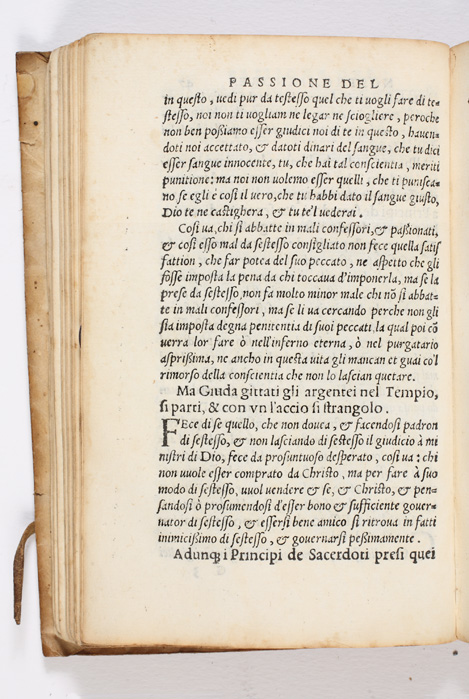 PASSIONE DEL
in questo, uedi pur da testesso quel che ti uogli fare di te-
stesso, noi non ti uogliam ne legar ne sciogliere, peroche
non ben possiamo esser giudici noi di te in questo, hauen-
doti noi accettato, & datoti dinari del sangue, che tu dici
esser sangue innocente, tu, che hai tal conscientia, meriti
punitione; ma noi non uolemo esser quelli, che ti punisca-
no se egli è così il uero, che tu habbi dato il sangue giusto,
Dio te ne castighera, & tu te'l uederai.
Così ua, chi si abbatte in mali confessori, & passionati,
& così esso mal da sestesso consigliato non fece quella satis
fattion, che far potea del suo peccato, ne aspetto che gli
fosse imposta la pena da chi toccaua d'imponerla, ma se la
prese da sestesso, non fa molto minor male chi nõ si abbat-
te in mali confessori, ma se li ua cercando perche non gli
sia imposta degna penitentia di suoi peccati, la qual poi cõ
uerra lor fare ò nell'inferno eterna, ò nel purgatario
asprissima, ne ancho in questa uita gli mancan et guai co'l
rimorso della conscientia che non lo lascian quetare.
Ma Giuda gittati gli argentei nel Tempio,
si parti, & con vn l'accio si strangolo.
FEce di se quello, che non douea, & facendosi padron
di sestesso, & non lasciando di sestesso il giudicio à mi
nistri di Dio, fece da prosuntuoso desperato, così ua: chi
non uuole esser comprato da Christo, ma per fare à suo
modo di sestesso, uuol vendere & se, & Christo, & pen-
sandosi ò prosumendosi d'esser bono & sufficiente gouer-
nator di sestesso, & essersi bene amico si ritroua in fatti
inimicissimo di sestesso, & gouernarsi pessimamente.
Adunqꝫ i Principi de Sacerdoti presi quei